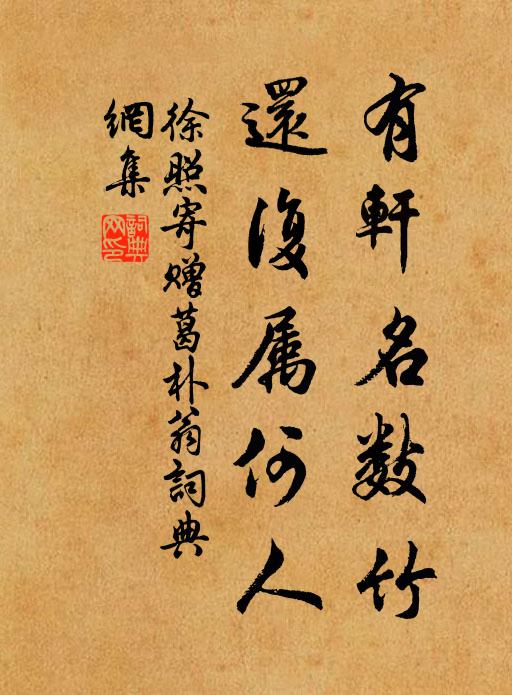 有軒名數竹
還復属何人
徐照寄贈葛朴翁詞典
網集
詞典
网印